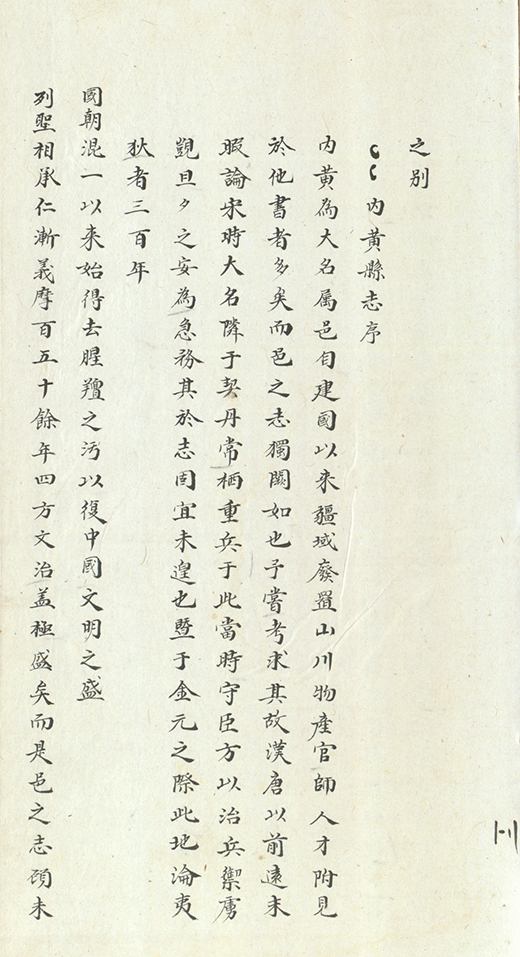 之别
内黄縣志序
内黄為大名属邑自建國以来疆域廢置山川物産官師人才附見
於他書者多矣而邑之志獨闕如也予嘗考求其故漢唐以前遠未
暇論宋時大名隣于契丹常栖重兵于此當時守臣方以治兵禦虜
覬旦夕之安為急務其於志固宜未遑也暨于金元之際此地淪夷
狄者三百年
國朝混一以来始得去腥羶之汚以復中國文明之盛
列聖相承仁漸義摩百五十餘年四方文治盖極盛矣而是邑之志頋未